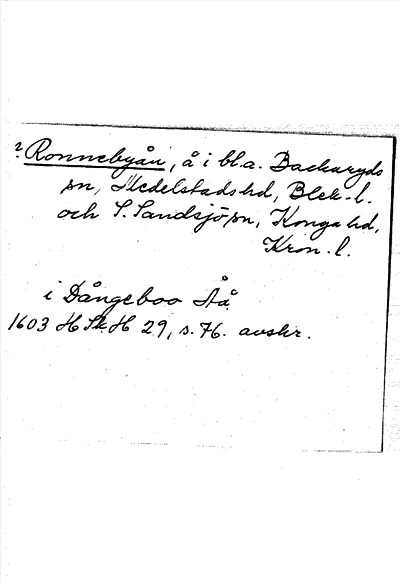 ? Ronnebyån, å i bl.a. Backaryds
sn, Medelstads hd, Blek. l.
och S. Sandsjö sn, Konga hd,
Kron. l.
i Dångeboo Åå
1603 H Sk H 29, s. 76. avskr.